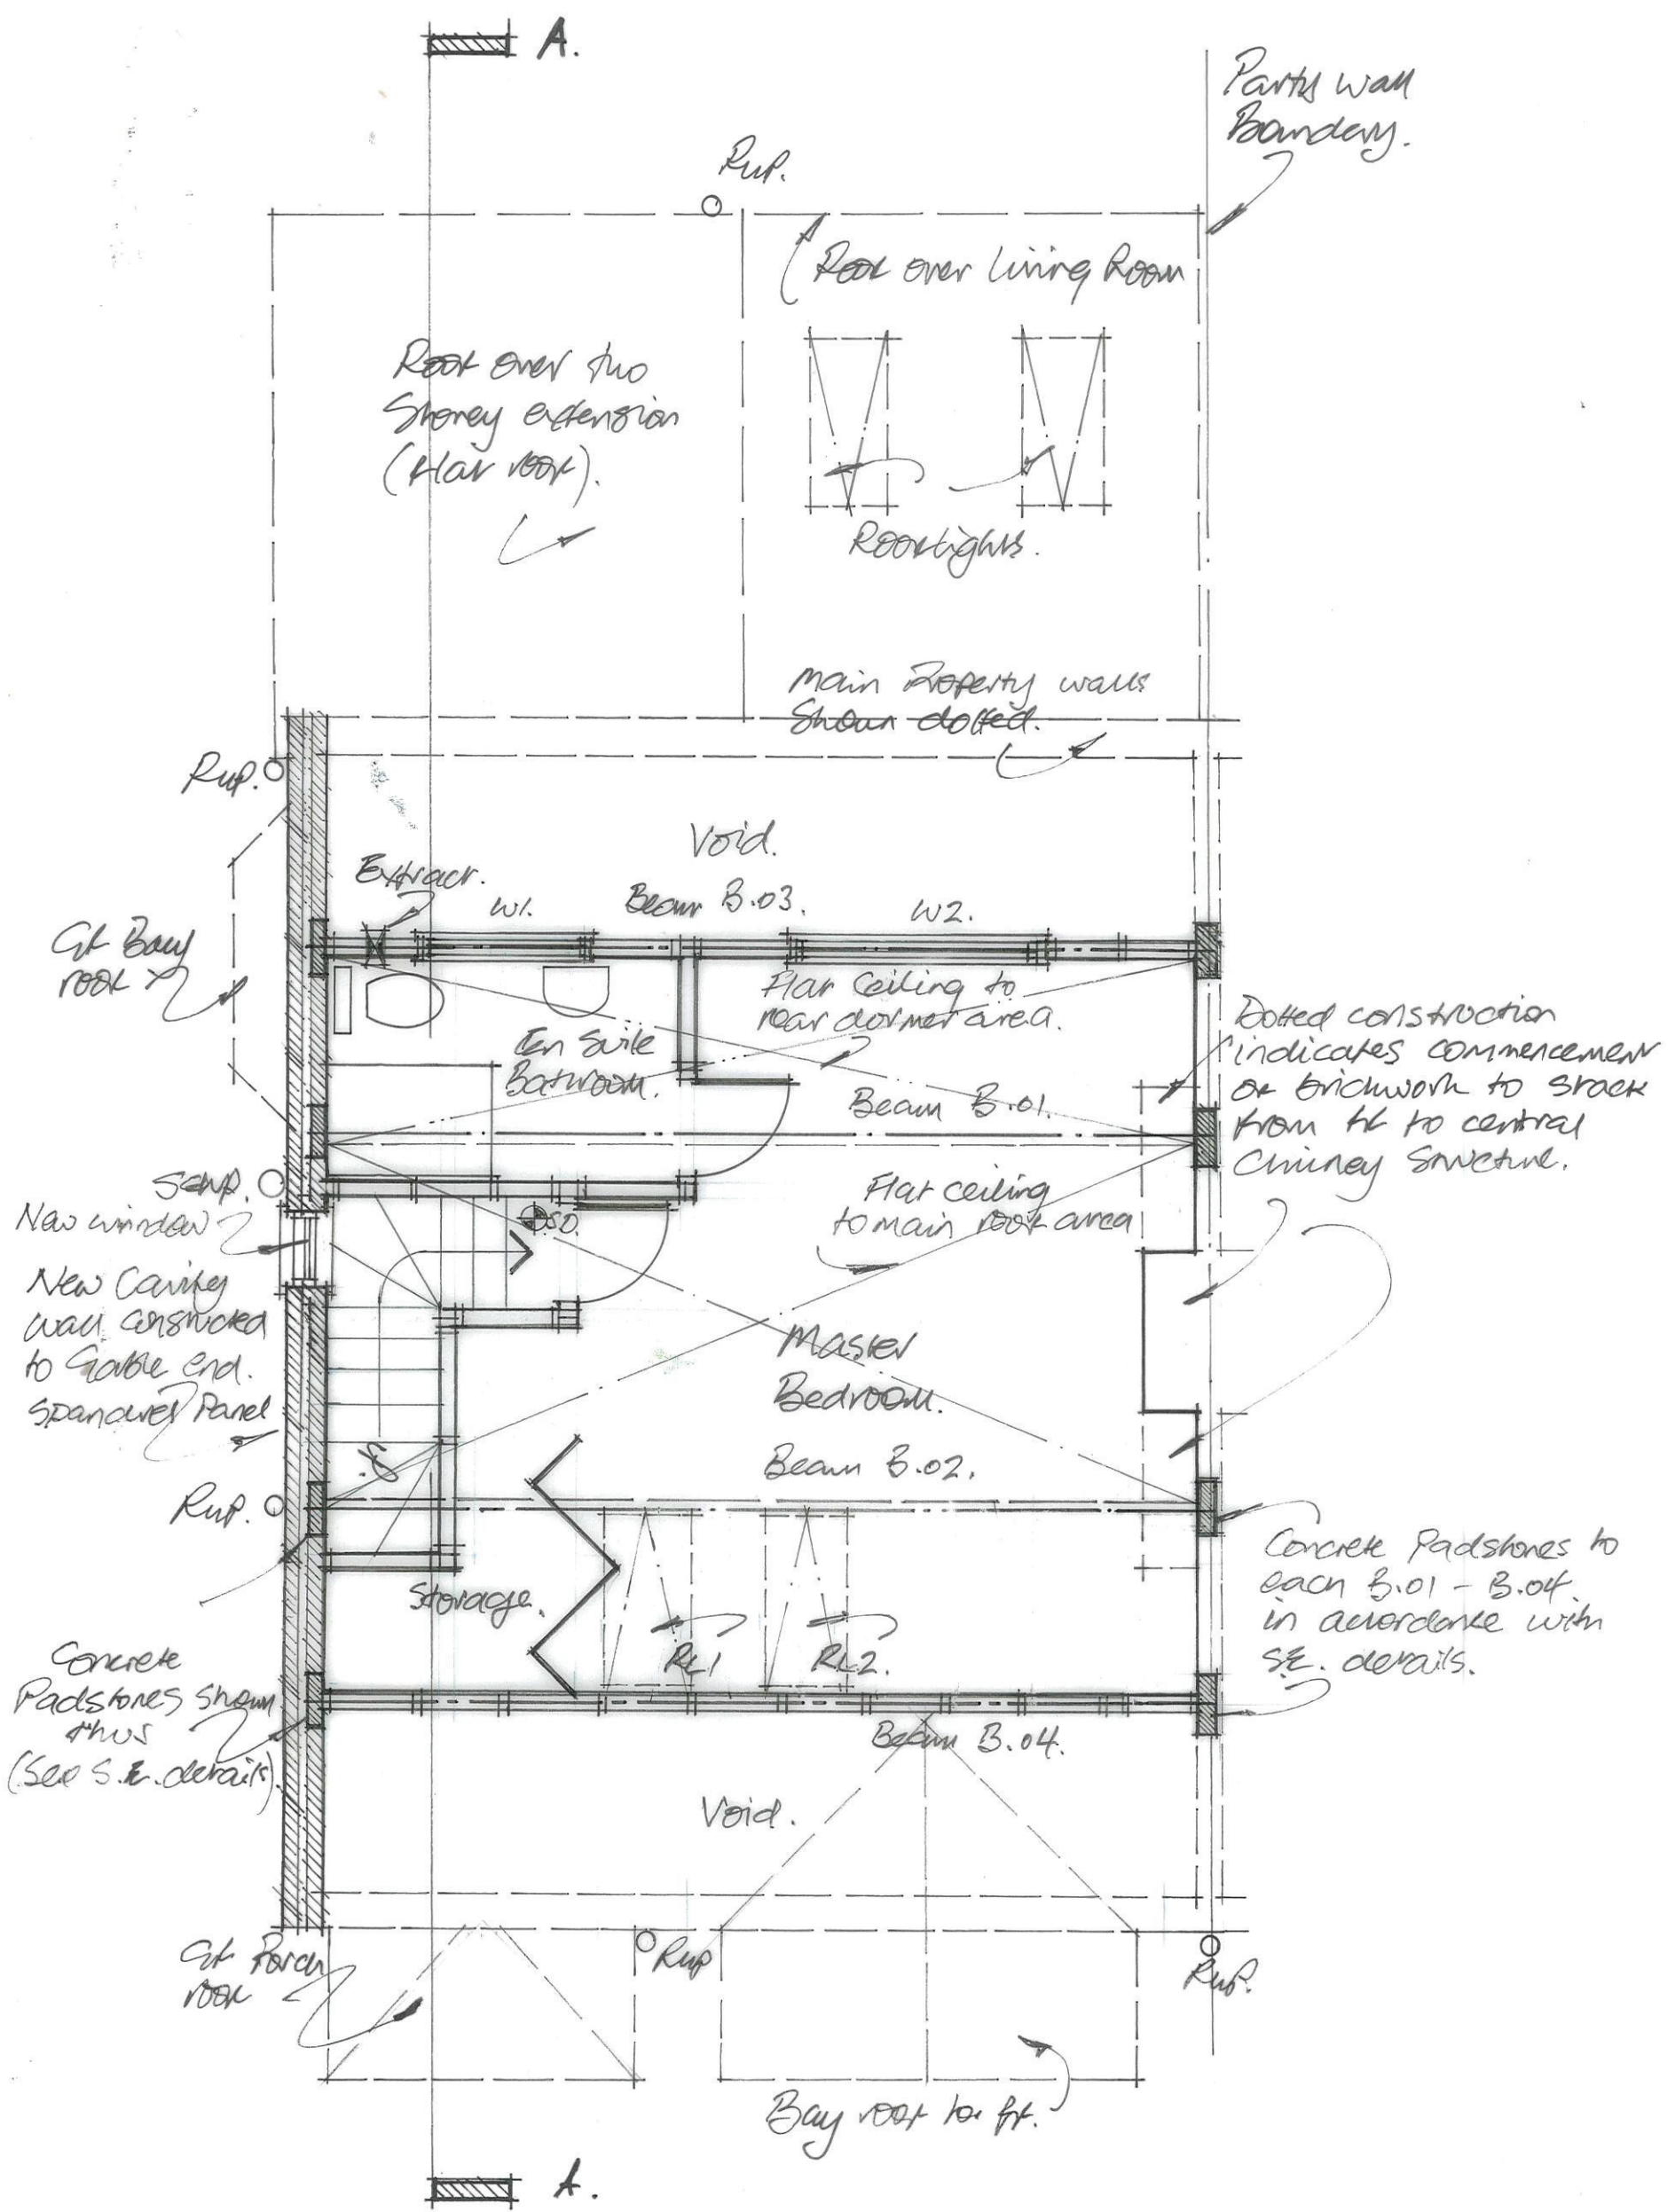 A.
Party wall
Boundary.
Rwp.
Roof over Living Room
Roof over two
Storey extension
(flat roof).
Rooflights.
Main Property walls
Shown dotted.
Rwp.
Void.
Extract.
W1.
Beam B.03.
W2.
Gf Bay
roof
Flat Ceiling to
rear dormer area.
En Suite
Bathroom.
Dotted construction
indicates commencement
of brickwork to stack
from ff to central
Chimney Structure.
Beam B.01.
SVP.
New window
S.D.
Flat ceiling
to main roof area
New Cavity
wall constructed
to Gable end.
Spandrel Panel
Master
Bedroom.
Beam B.02.
Rwp.
Storage.
RL1
RL2.
Concrete Padstones to
each B.01 - B.04
in accordance with
S.E. details.
Concrete
Padstones shown
thus
(See S.E. details).
Beam B.04.
Void.
Gf Porch
roof
Rwp
Rwp.
Bay roof to ff.
A.